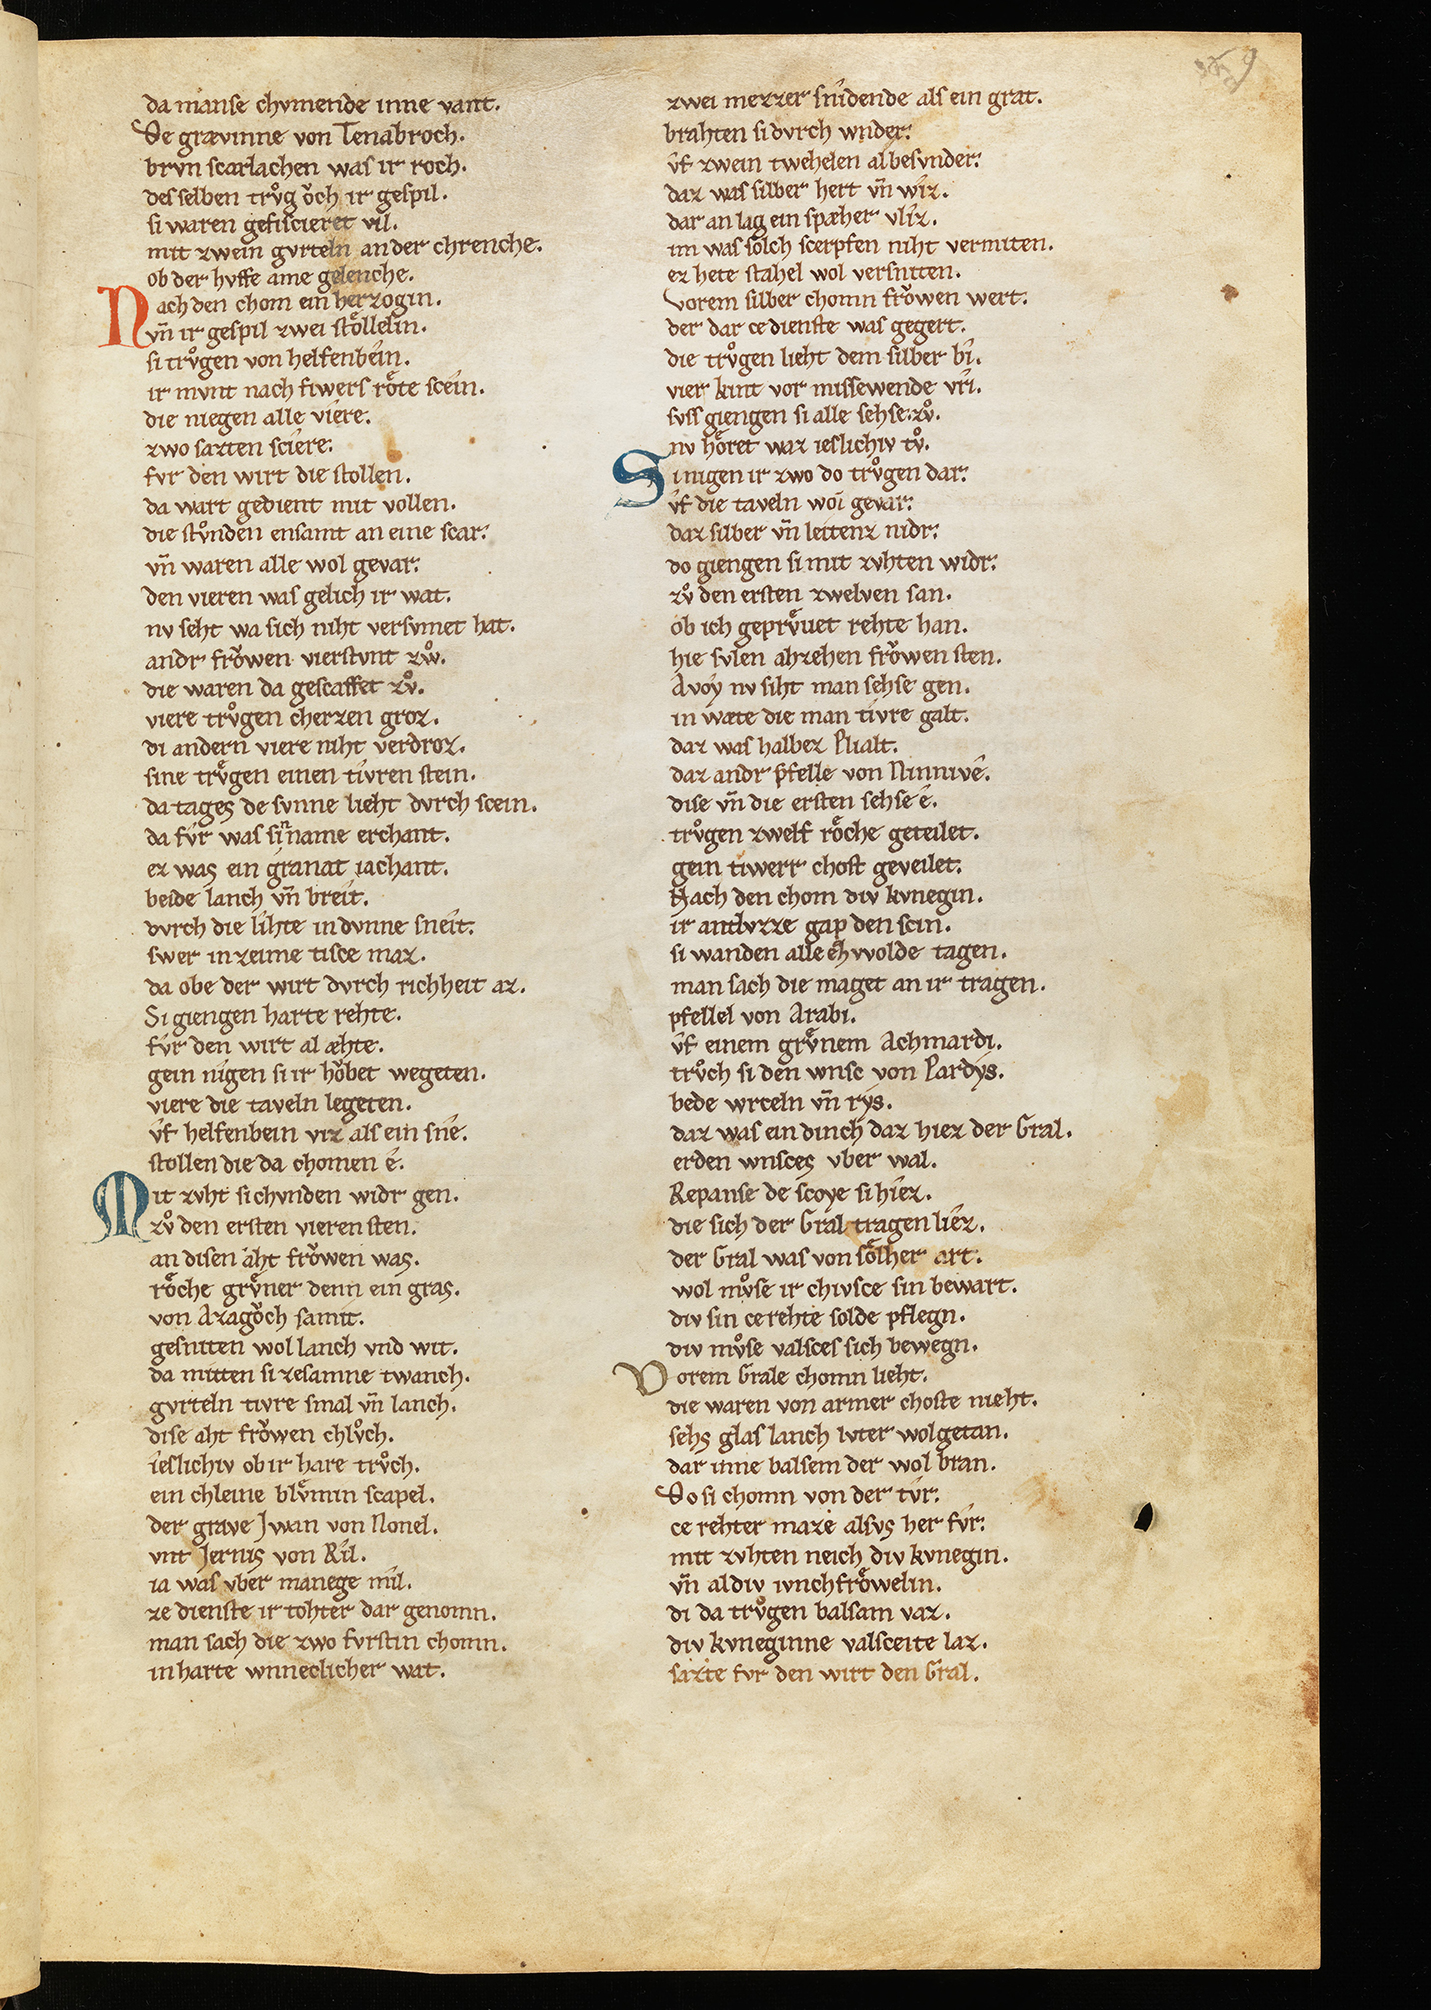 da manse chvmende inne vant.
De grævinne von Tenabroch.
brvn scarlachen was ir roch.
des selben trvͦg oͮch ir gespil.
si waren gefiscieret vil.
mit zwein gvrteln an der chrenche.
ob der hvffe ame gelenche.
Nach den chom ein herzogin.
vn̄ ir gespil zwei stoͤllelin.
si trvͦgen von helfenbein.
ir mvnt nach fiwers roͤte scein.
die niegen alle viere.
zwo sazten sciere.
fvr den wirt die stollen.
da wart gedient mit vollen.
die stvͦnden ensamt an eine scar.
vn̄ waren alle wol gevar.
den vieren was gelich ir wat.
nv seht wa sich niht versvmet hat.
andr froͮwen vierstvnt zwͦ.
die waren da gescaffet zvͦ.
viere trvͦgen cherzen groz.
di andern viere niht verdroz.
sine trvͤgen einen tivren stein.
da tages de svnne lieht dvrch scein.
da fv́r was sin name erchant.
ez was ein granat iachant.
beide lanch vn̄ breit.
dvrch die lihte in dvnne sneit.
swer in zeime tisce maz.
da obe der wirt dvrch richheit az.
Si giengen harte rehte.
fv́r den wirt al æhte.
gein nigen si ir hoͮbet wegeten.
viere die taveln legeten.
v̂f helfenbein viz als ein sne.
stollen die da chomen e.
Mit zvht si chvnden widr gen.
zvͦ den ersten vieren sten.
an disen aht froͮwen was.
roͤche grvͤner denn ein gras.
von Azagoͮch samit.
gesniten wol lanch vnd wit.
da mitten si zesamne twanch.
gvrteln tivre smal vn̄ lanch.
dise aht froͮwen chlvͦch.
ieslichiv ob ir hare trvͦch.
ein chleine blvͤmin scapel.
der grave Jwan von Nonel.
vnt Jernis von Ril.
ia was vber manege mil.
ze dienste ir tohter dar genomn.
man sach die zwo fvrstin chomn.
in harte wnneclicher wat.
zwei mezzer snidende als ein grat.
brahten si dvrch wnder.
v̂f zwein twehelen al besvnder.
daz was silber hert vn̄ wiz.
dar an lag ein spæher vliz.
im was solch scerpfen niht vermiten.
ez hete stahel wol versniten.
Vorem silber chomn froͮwen wert.
der dar ce dienste was gegert.
die trvͦgen lieht dem silber bi.
vier kint vor missewende vri.
svss giengen si alle sehse zvͦ.
nv hoͤret waz ieslichiv tvͦ.
Si nigen ir zwo do trvͦgen dar.
v̂f die taveln wol gevar.
daz silber vn̄ leitenz nidr.
do giengen si mit zvhten widr.
zvͦ den ersten zwelven san.
ob ich geprvͤuet rehte han.
hie svlen ahzehen froͮwen sten.
Avoy nv siht man sehse gen.
in wæte die man tivre galt.
daz was halbez Plialt.
daz andr pfelle von Ninnive.
dise vn̄ die ersten sehse e.
trvͦgen zwelf roͤche geteilet.
gein tiwerr chost geveilet.
Nach den chom div kvnegin.
ir antlvzze gap den scin.
si wanden alle ez wolde tagen.
man sach die maget an ir tragen.
pfellel von Arabi.
v̂f einem grvͤnem Achmardi.
trvͦch si den wnsc von Pardys.
bede wrceln vn̄ rys.
daz was ein dinch daz hiez der Gral.
erden wnsces vber wal.
Repanse de scoye si hiez.
die sich der Gral tragen liez.
der Gral was von soͤlher art.
wol mvͦse ir chivsce sin bewart.
div sin ce rehte solde pflegn.
div mvͦse valsces sich bewegn.
Vorem Grale chomn lieht.
die waren von armer choste nieht.
sehs glas lanch lvter wolgetan.
dar inne balsem der wol bran.
Do si chomn von der tv́r.
ce rehter maze alsvs her fv́r.
mit zvhten neich div kvnegin.
vn̄ al div ivnchfroͮwelin.
di da trvͦgen balsam vaz.
div kvneginne valsceite laz.
sazte fvr den wirt den Gral.